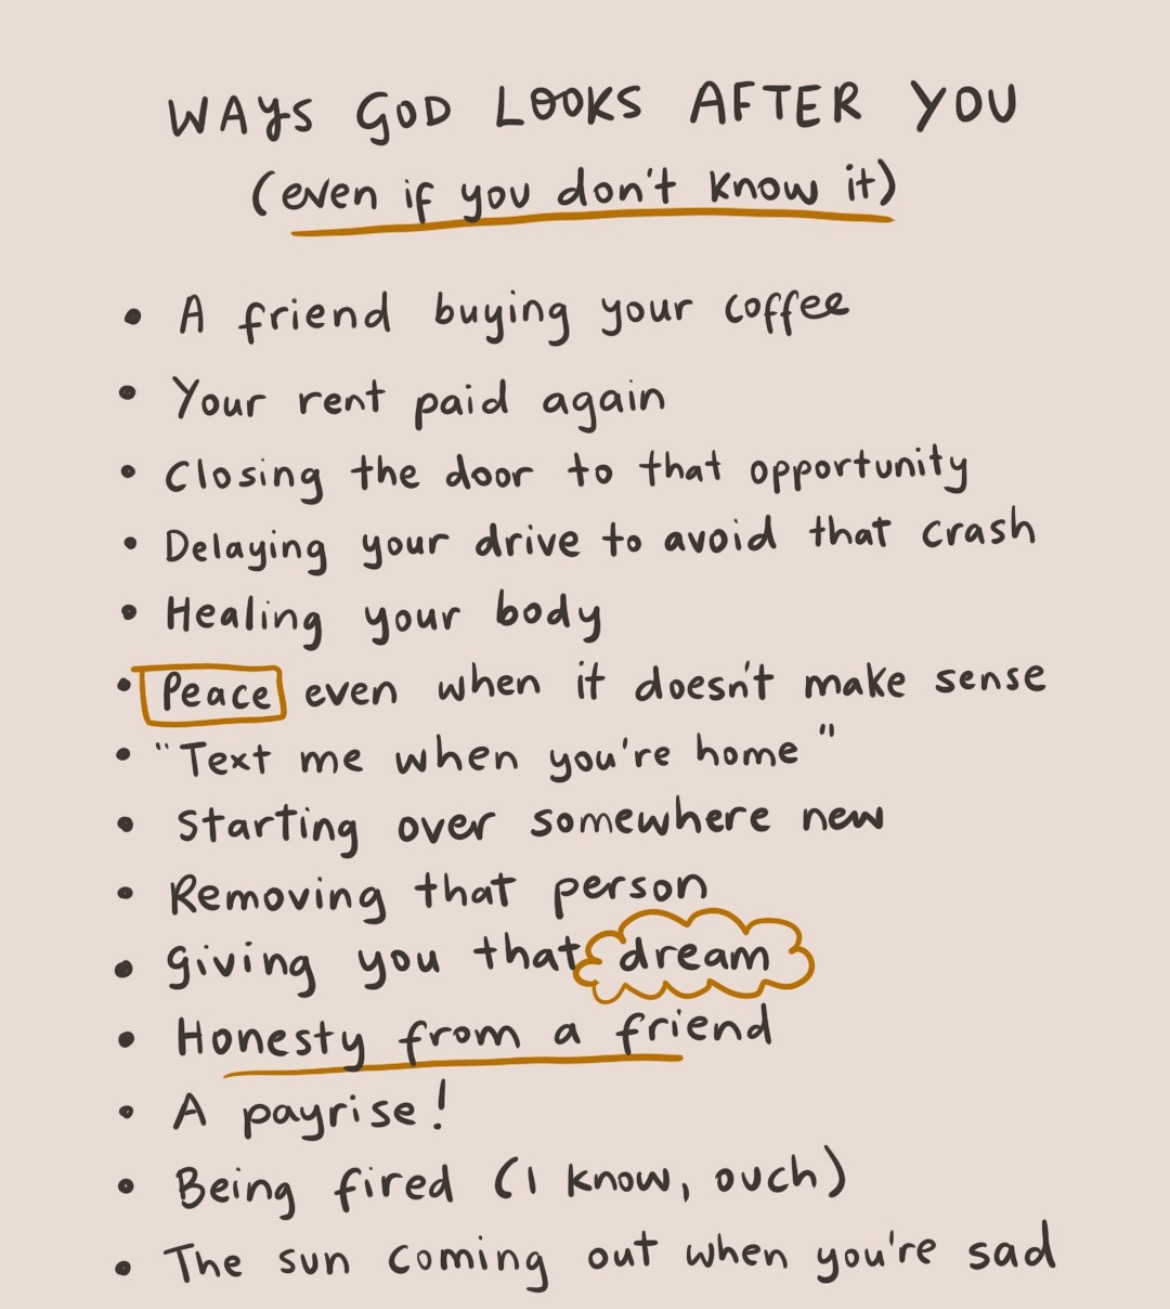 WAYS GOD LOOKS AFTER YOU
(even if you don't know it)
• A friend buying your coffee
• Your rent paid again
• Closing the door to that opportunity
• Delaying your drive to avoid that crash
• Healing your body
• Peace even when it doesn't make sense
• "Text me when you're home"
• Starting over somewhere new
• Removing that person
• Giving you that dream
• Honesty from a friend
• A payrise!
• Being fired (I know, ouch)
• The sun coming out when you're sad